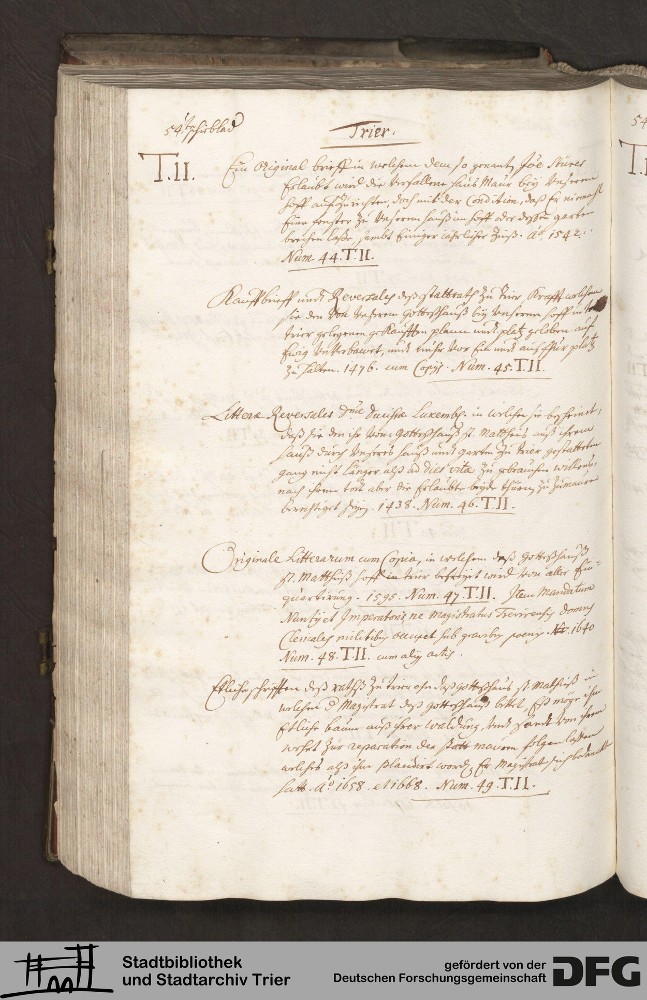 Trier.
T.II.
Ein Original brieff in welchem dem so genant
Erlaubt wird die Verfallene haus Maur bey Unserem
hoff auffzurichten, doch mit der Condition, daß Er
fenster zu Unserem hauß im hoff oder garten
brechen laße, sambt Einiger jährlicher Zinß. Aõ 1542.
Num. 44. T.II.
Kauffbrieff undt Reversales deß stattraths zu Trier, Krafft welchem
sie den Von Unserem Gotteshauß bey Unserem hoff in
trier gelegenen gekaufften plann undt platz geloben
Unverbawet, undt
zu halten. 1476. cum Copijs. Num. 45. T.II.
Litteræ Reversales Ducissæ Luxemb. in welchen sie bescheinet,
daß sie den ihr Vom Gotteshauß st. Mattheis auß ihrem
hauß durch Unseres hauß undt garten zu trier gestatteten
gang nicht länger alß ad dies vitæ zu gebrauchen
nach ihrem todt aber die Erlaubte beyde thüren
1438. Num. 46. T.II.
Originale Litterarum cum Copia, in welchem daß Gotteshauß
st. Mattheiß hoff in trier befreyet wird Von aller Ein-
quartirung. 1595. Num. 47. T.II. Item Mandatum
Nuntij et Imperatoris, ne Magistratus Trevirensis domus
Clericales militibus occupet sub gravibus poenis. 1640
Num. 48. T.II. cum alijs actis.
Etliche schrifften deß raths zu trier ahn daß Gotteshaus st. Matheiß in
welchen d Magistrat daß gotteshauß bittet, Eß möge ihr
Etliche bäum auß ihrer Waldung, undt Von ihrem
zur reparation der statt mauren folgen laßen
welches alß ihm word, Er Magistrat sich bedanckt
hatt. Aõ 1658. et 1668. Num. 49. T.II.
Stadtbibliothek
und Stadtarchiv Trier
gefördert von der
Deutschen Forschungsgemeinschaft
DFG